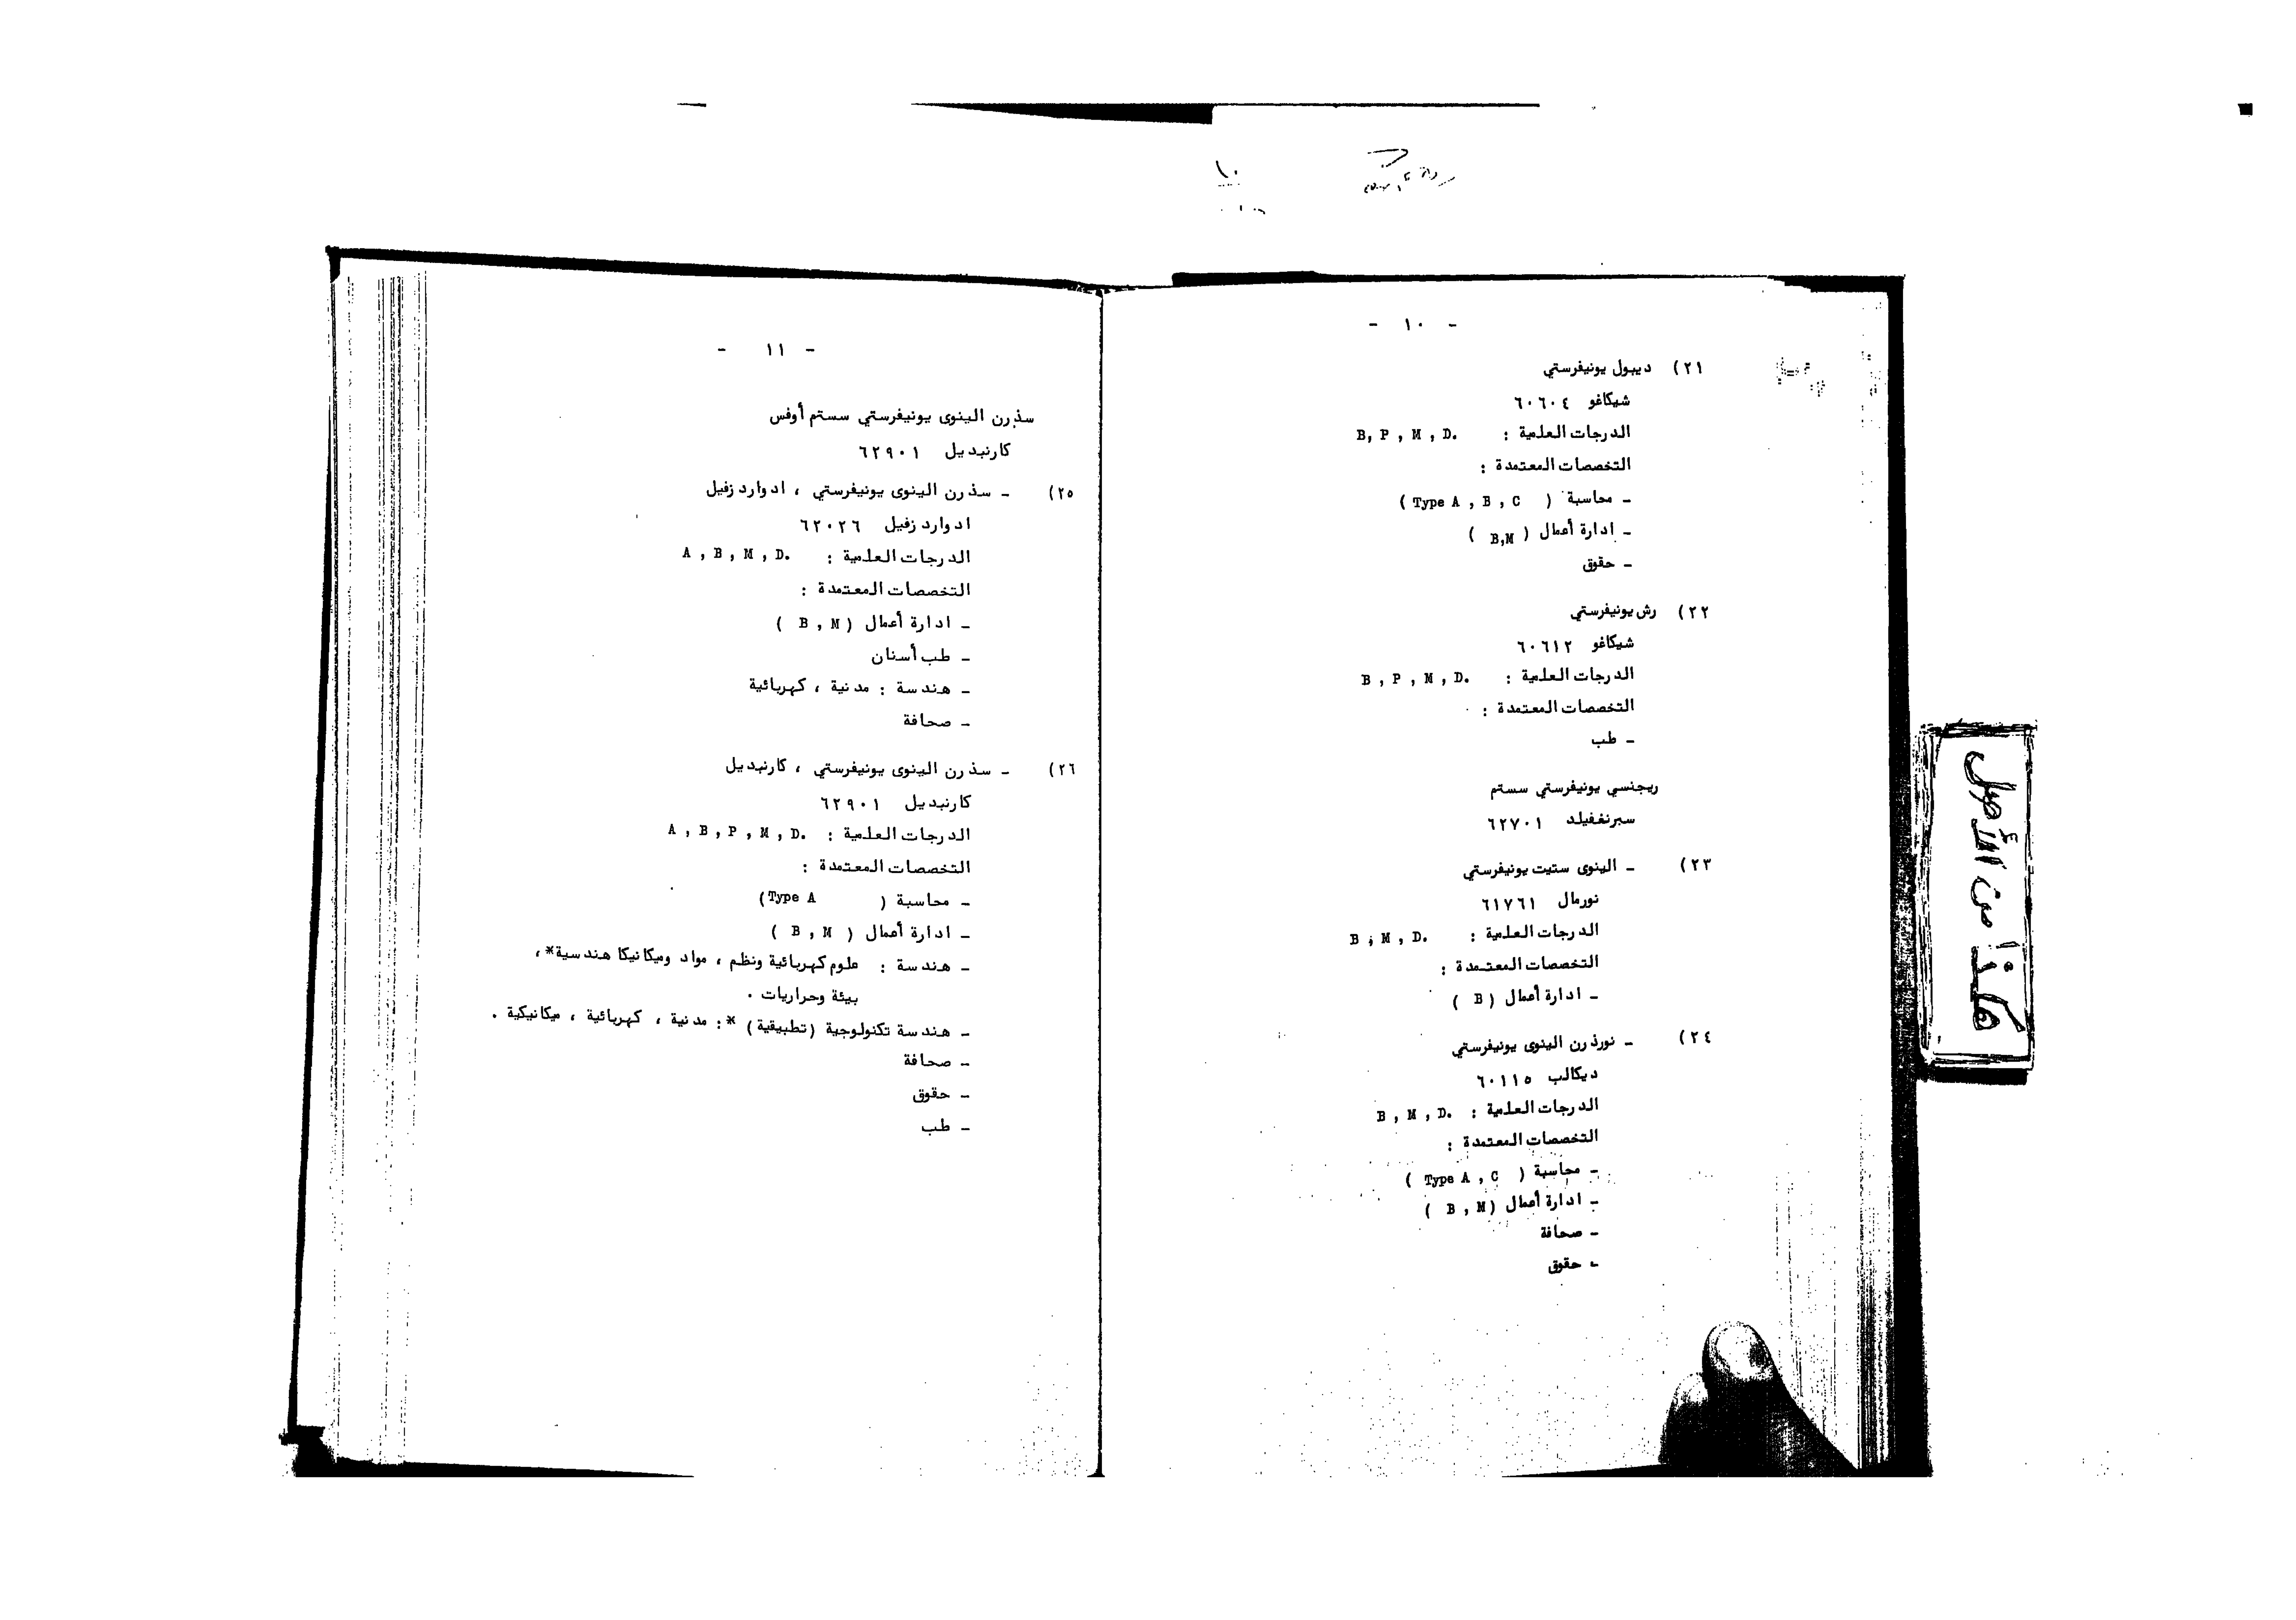 - ١٠ -
٢١) ديبول يونيفرستي
شيكاغو ٦٠٦٠٤
الدرجات العلمية : B, P , M , D.
التخصصات المعتمدة :
- محاسبة ( Type A , B , C )
- ادارة أعمال ( B,M )
- حقوق
٢٢) رش يونيفرستي
شيكاغو ٦٠٦١٢
الدرجات العلمية : B , P , M , D.
التخصصات المعتمدة :
- طب
ريجنسي يونيفرستي سستم
سبرنغفيلد ٦٢٧٠١
٢٣) - الينوى ستيت يونيفرستي
نورمال ٦١٧٦١
الدرجات العلمية : B , M , D.
التخصصات المعتمدة :
- ادارة أعمال ( B )
٢٤) - نورذرن الينوى يونيفرستي
ديكالب ٦٠١١٥
الدرجات العلمية : B , M , D.
التخصصات المعتمدة :
- محاسبة ( Type A , C )
- ادارة أعمال ( B , M )
- صحافة
- حقوق
- ١١ -
سذرن الينوى يونيفرستي سستم أوفس
كارنبديل ٦٢٩٠١
٢٥) - سذرن الينوى يونيفرستي ، ادواردزفيل
ادواردزفيل ٦٢٠٢٦
الدرجات العلمية : A , B , M , D.
التخصصات المعتمدة :
- ادارة أعمال ( B , M )
- طب أسنان
- هندسة : مدنية ، كهربائية
- صحافة
٢٦) - سذرن الينوى يونيفرستي ، كارنبديل
كارنبديل ٦٢٩٠١
الدرجات العلمية : A , B , P , M , D.
التخصصات المعتمدة :
- محاسبة ( Type A )
- ادارة أعمال ( B , M )
- هندسة : علوم كهربائية ونظم ، مواد وميكانيكا هندسية* ،
بيئة وحراريات .
- هندسة تكنولوجية (تطبيقية) * : مدنية ، كهربائية ، ميكانيكية .
- صحافة
- حقوق
- طب
هكذا من الأصل
١٠